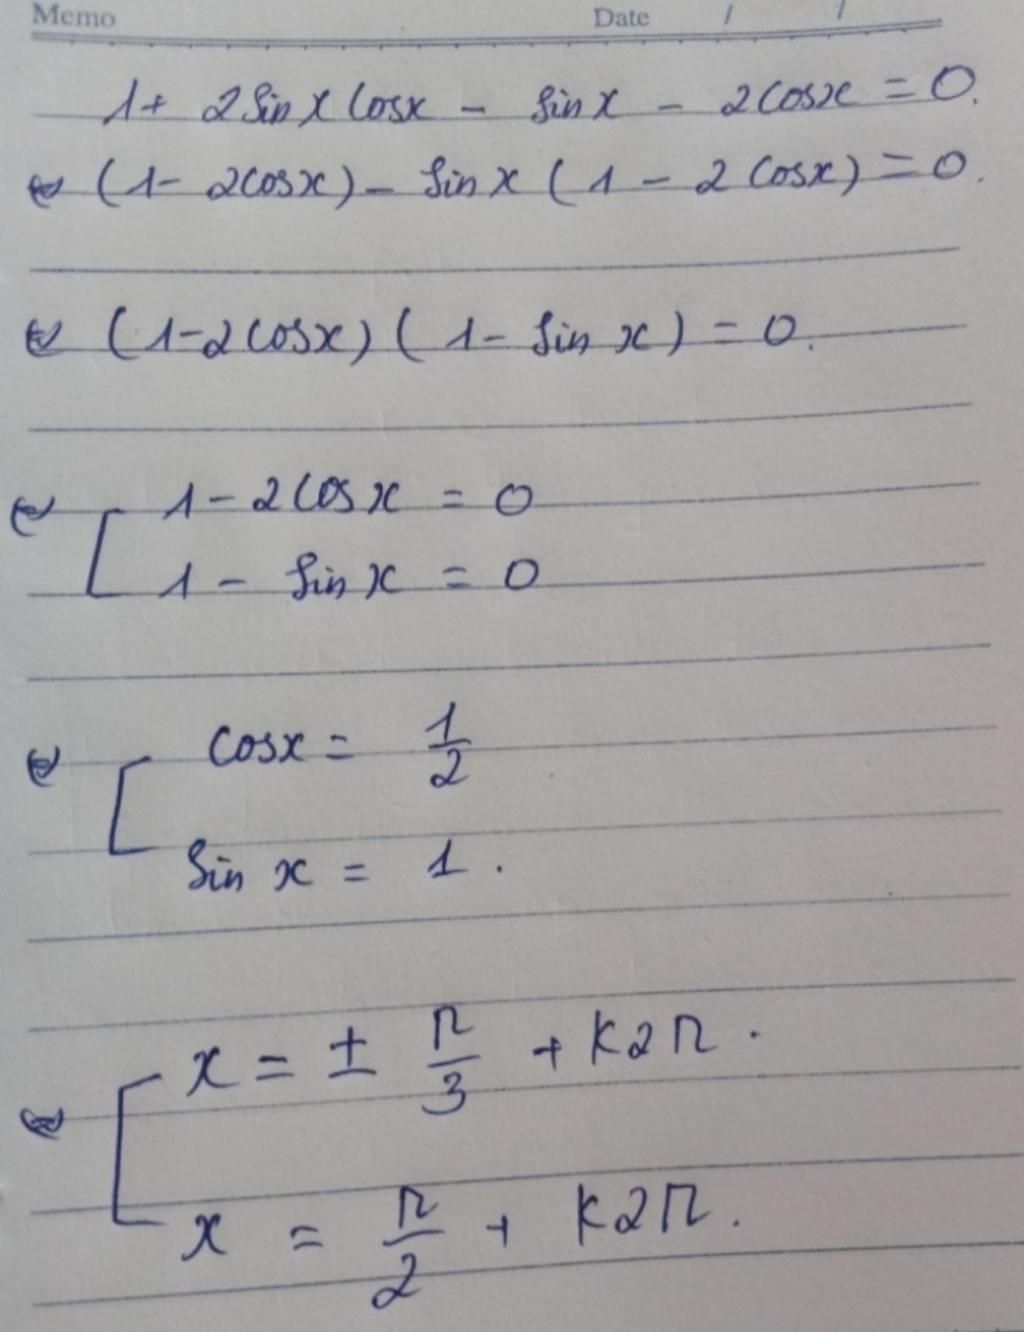 Memo Date / /
1 + 2 sin x cos x - sin x - 2 cos x = 0.
⇔ (1 - 2 cos x) - sin x (1 - 2 cos x) = 0.
⇔ (1 - 2 cos x) (1 - sin x) = 0.
⇔ [ 1 - 2 cos x = 0
1 - sin x = 0
⇔ [ cos x = 1/2
sin x = 1.
⇔ [ x = ± π/3 + k2π.
x = π/2 + k2π.